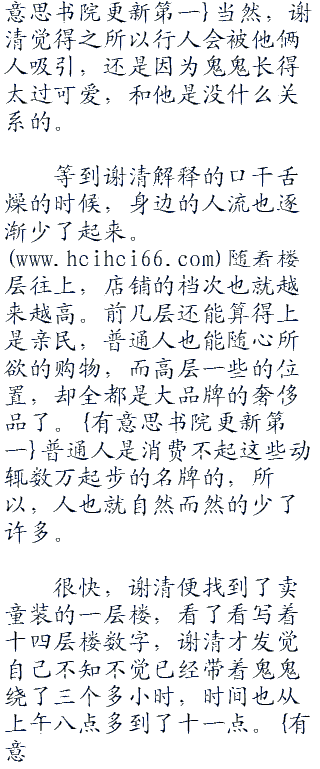 意思书院更新第一}当然，谢
清觉得之所以行人会被他俩
人吸引，还是因为鬼鬼长得
太过可爱，和他是没什么关
系的。
等到谢清解释的口干舌
燥的时候，身边的人流也逐
渐少了起来。
(www.hcihci66.com)随着楼
层往上，店铺的档次也就越
来越高。前几层还能算得上
是亲民，普通人也能随心所
欲的购物，而高层一些的位
置，却全都是大品牌的奢侈
品了。{有意思书院更新第
一}普通人是消费不起这些动
辄数万起步的名牌的，所
以，人也就自然而然的少了
许多。
很快，谢清便找到了卖
童装的一层楼，看了看写着
十四层楼数字，谢清才发觉
自己不知不觉已经带着鬼鬼
绕了三个多小时，时间也从
上午八点多到了十一点。{有
意